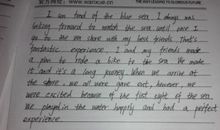 I am fond of the blue sea. I always was
looking forward to watch the sea until once I
go to the sea shore with my best friends. That's
fantastic experience. I and my friends made
a plan to ride a bike to the sea. We made
it and it's a long journey. When we arrive at
the shore, we all were gave out, however, we
were excited because of the first sight of the sea.
We played in the water happily and had a perfect
experience.